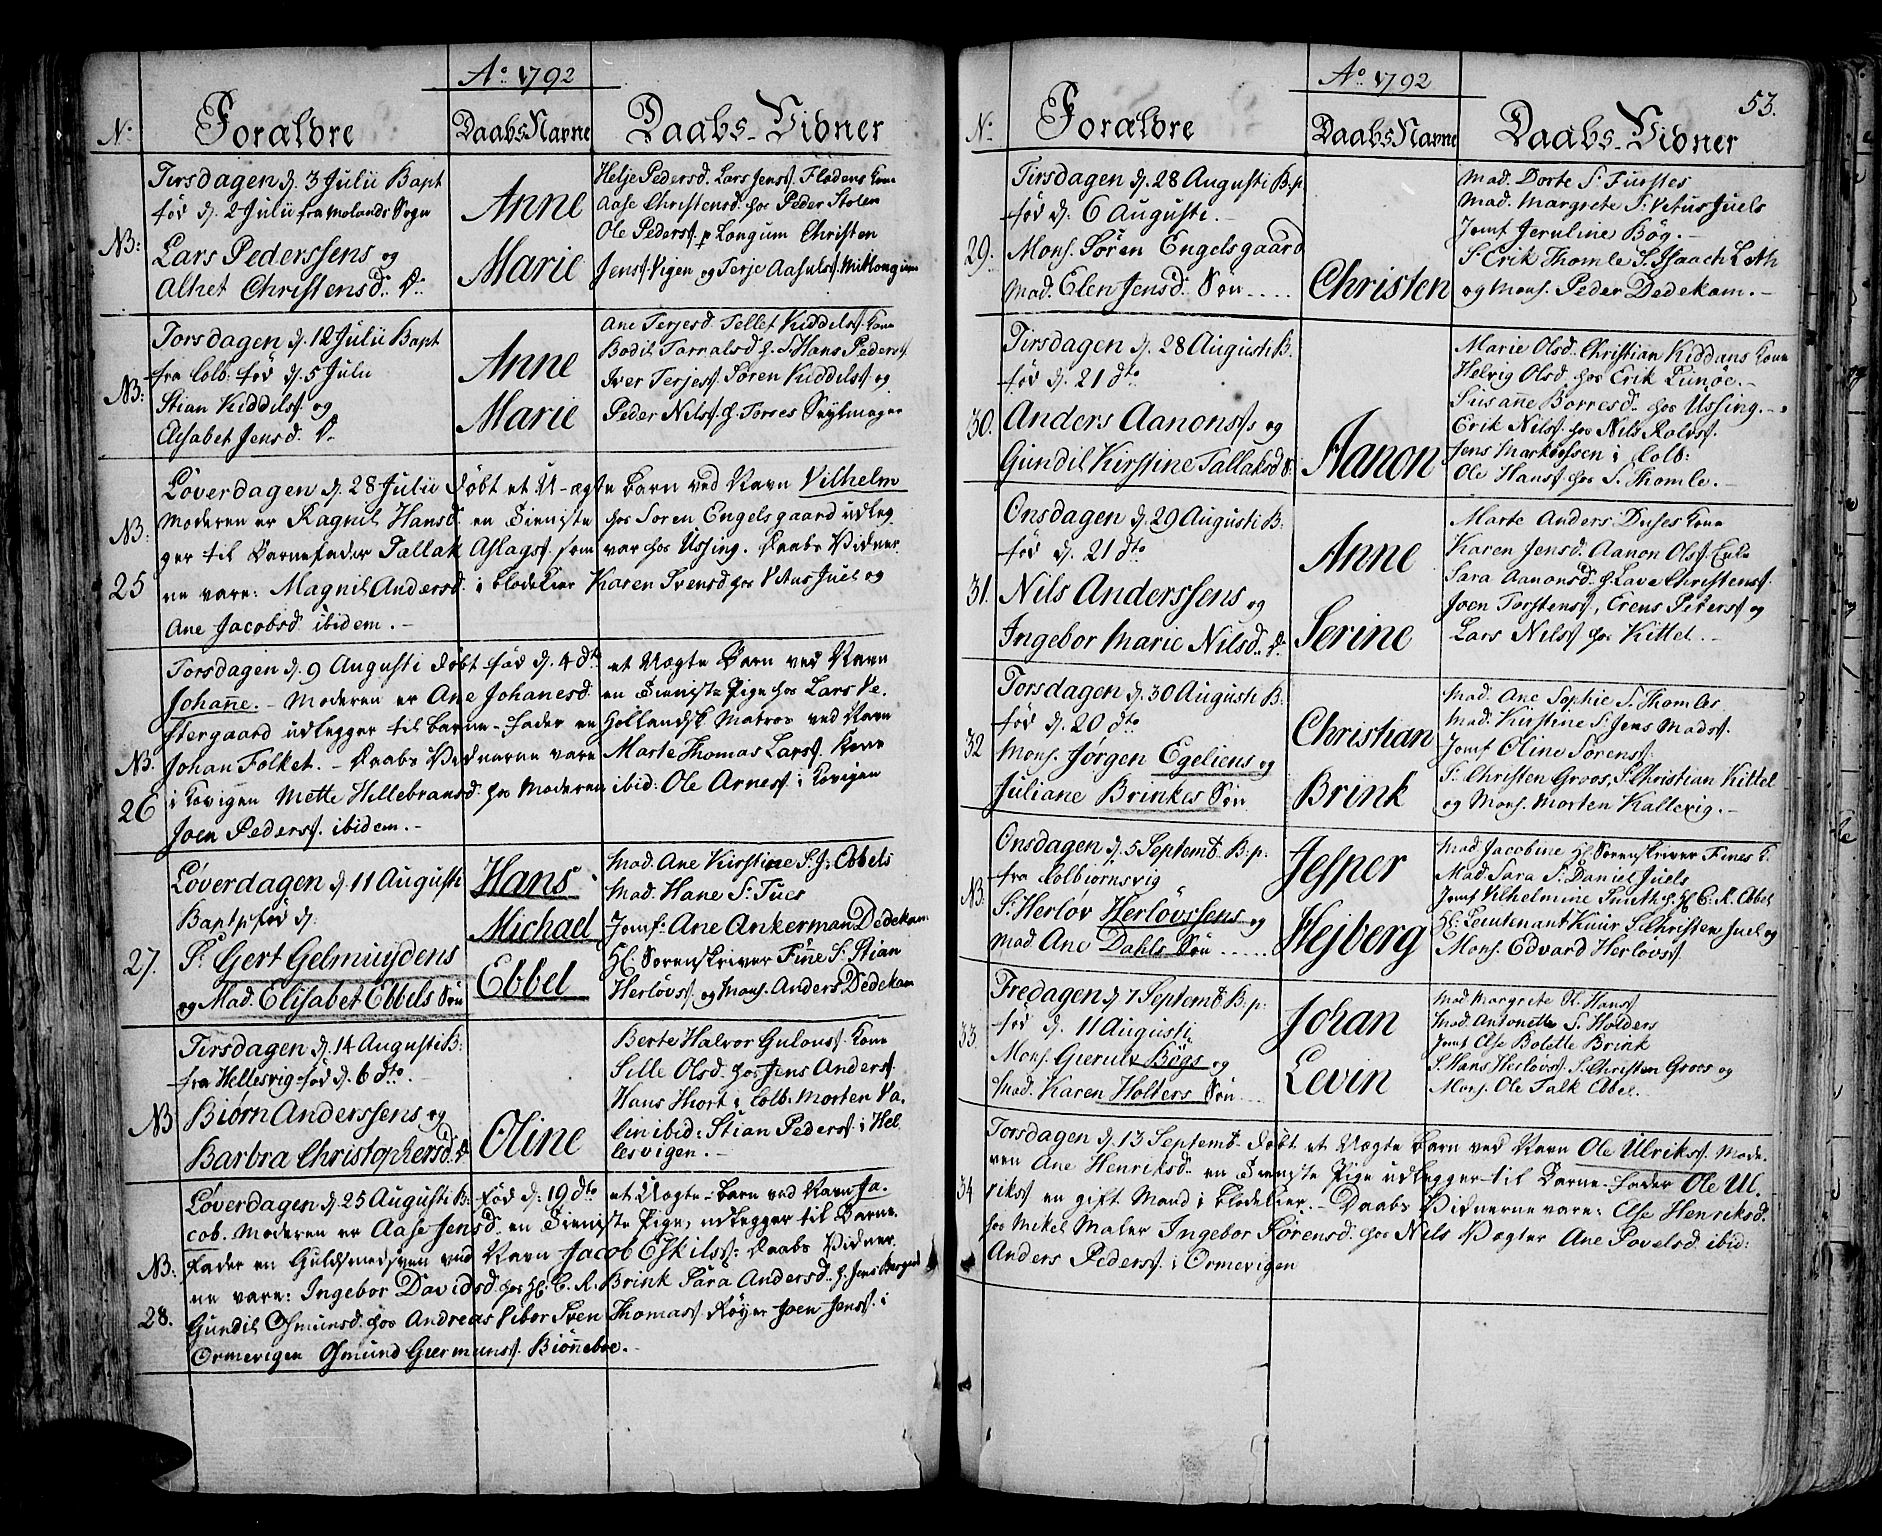 Ao 1792
No
Forældre
Daabs Navne
Daabs-Vidner
Tirsdagen d. 3 Julii Bapt
fød d. 2 Julii fra Molands Sogn
NB:
Lars Pederssens og
Alhet Christensd. D.
Anne
Marie
Helje Pedersd. Lars Jens. Flodens Kone
Aase Christensd. hos Peder Stolen
Ole Peders. p Longum Christen
Jens. Vigen og Terje Aasuls. Mit Longum
Torsdagen d. 12 Julii Bapt
fra Colb. fød d. 5 Juli
NB:
Stian Kiddils. og
Elisabet Jensd. D.
Anne
Marie
Ane Terjesd. Tellef Kiddils. Kone
Bodil Tarralsd h. S. Hans Peders.
Iver Terjes. Søren Kiddils. og
Peder Nils. h. Torres Seylmager
Løverdagen d. 28 Julii Døbt et U-ægte Barn ved Navn Vilhelm
NB:
Moderen er Ragnil Hansd. en Tieniste hos Søren Engelsgaard udleg
ger til Barnefader Tallak Aslags. som var hos Ussing. Daabs Vidner
25
ne vare: Magnil Andersd. i Blodekier Karen Svensd hos Vitus Juel og
Ane Jacobsd ibidem.-
Torsdagen d. 9 Augusti Døbt fød d. 4 dto et Uægte Barn ved Navn
Johanne.- Moderen er Ane Johanesd. en Tieniste Pige hos Lars Ve-
stergaard udlegger til Barne-Fader en Hollandsk Matros ved Navn
NB.
Johan Folket.- Daabs Vidnerne vare Marte Thomas Lars. Kone
26
i Kovigen Mette Hillebransd. hos Moderen ibid: Ole Arnes. i Kovigen
Joen Peders. ibidem.-
Løverdagen d. 11 Augusti
Bapt p fød d:
27.
Sr Gert Gelmuydens
og Mad. Elisabet Ebbels Søn
Hans
Michael
Ebbel
Mad. Ane Kirstine S. J: Ebbels
Mad. Hane S. Tues
Jomf: Ane Ankerman Dedekam
H. Sorenskriver Finne S. Stian
Herløvs. og Mons. Anders Dedekam
Tirsdagen d. 14 Augusti B:
fra Hellesvig fød d. 6 dto.-
NB
Biørn Anderssens og
Barbra Christophersd. D
Oline
Berte Halvor Gulous. Kone
Sille Olsd. hos Jens Anders.
Hans Hiort i Colb. Morten Va-
lin ibid: Stian Peders. i Hel
lesvigen.-
Løverdagen d. 25 Augusti B. fød d: 19 dto et Uægte-Barn ved Navn Ja-
cob. Moderen er Aase Jensd. en Tieniste Pige, udlegger til Barne
NB:
Fader en Guldsmedsven ved Navn Jacob Eskils: Daabs Vidner
ne vare: Ingebor Davidsd. hos H. C. R. Brink Sara Andersd. h. Jens Bergend
28.
Gundil Osmunsd. hos Andreas Vibor Sven Thomas. Røyer Joen Jens. i
Ormevigen Osmund Giermuns. Biønneboe.-
Ao 1792
53.
No
Forældre
Daabs Navne
Daabs-Vidner
Tirsdagen d. 28 Augusti B:p.
fød d: 6 Augusti.-
29.
Mons. Søren Engelsgaard
Mad. Elen Jensd. Søn
Christen
Mad. Dorte S. Furstes
Mad. Margrete S. Vitus Juels
Jomf Jeruline Bøg.-
S. Erik Thomle S. Isaach Leth
og Mons. Peder Dedekam.-
Tirsdagen d. 28 Augusti B.
fød d. 21 dto
30.
Anders Aanons. og
Gundil Kirstine Tallaksd S.
Aanon
Marie Olsd. Christian Kiddans Kone
Helvig Olsd. hos Erik Tunøe.-
Susanne Børresd. hos Ussing.-
Erik Nils. hos Nils Rolvs.
Jens Markussen i Colb:
Ole Hans. hos S. Thomle.-
Onsdagen d. 29 Augusti B:
fød d. 21 dto
31.
Nils Anderssens og
Ingebor Marie Nilsd. D.
Anne
Serine
Marte Anders Duses Kone
Karen Jensd. Aanon Ols. Enke
Sara Aanonsd. h. Lave Christens.
Joen Torstens, Erens Peters. og
Lars Nils. hos Kittel.-
Torsdagen d. 30 Augusti B.
fød d. 20 dto
32
Mons. Jørgen Egeliens og
Juliane Brinkes Søn
Christian
Brink
Mad. Ane Sophie S. Thomles
Mad. Kirstine S. Jens Mads.
Jomf Oline Sørens.
S. Christen Groos, S. Christian Kittel
og Mons. Morten Kallevig.-
Onsdagen d. 5 Septemb. B:p:
fra Colbiørnsvig
NB.
S. Herløv Herløvssens og
Mad. Ane Dahls Søn
Jesper
Hejberg
Mad Jacobine H. Sorenskriver Fines K.
Mad. Sara S. Daniel Juels
Jomf Vilhelmine Smith h. H. C. R. Ebbel
H. Lieutenant Kuur S. Christen Juel og
Mons. Edvard Herløvs.
Fredagen d. 7 Septemb. B.p:
fød d. 11 Augusti
33.
Mons. Gierulv Bøgs og
Mad. Karen Holters Søn
Johan
Levin
Mad Margrete H. Hans.
Mad. Antonette S. Holders
Jomf Else Bolette Brink
S. Hans Herløvs. S. Christen Groos og
Mons. Ole Falk Ebbel.-
Torsdagen d. 13 Septemb. Døbt et Uægte Barn ved Navn Ole Ulriks. Mode-
ren Ane Henriksd. en Tieniste Pige udlegger til Barne-Fader Ole Ul-
34
riks. en gift Mand i Blodekier.- Daabs Vidnerne vare: Else Henriksd.
hos Mikel Maler Ingebor Sørensd. hos Nils Vægter Ane Povelsd. ibid:
Anders Peders. i Ormevigen